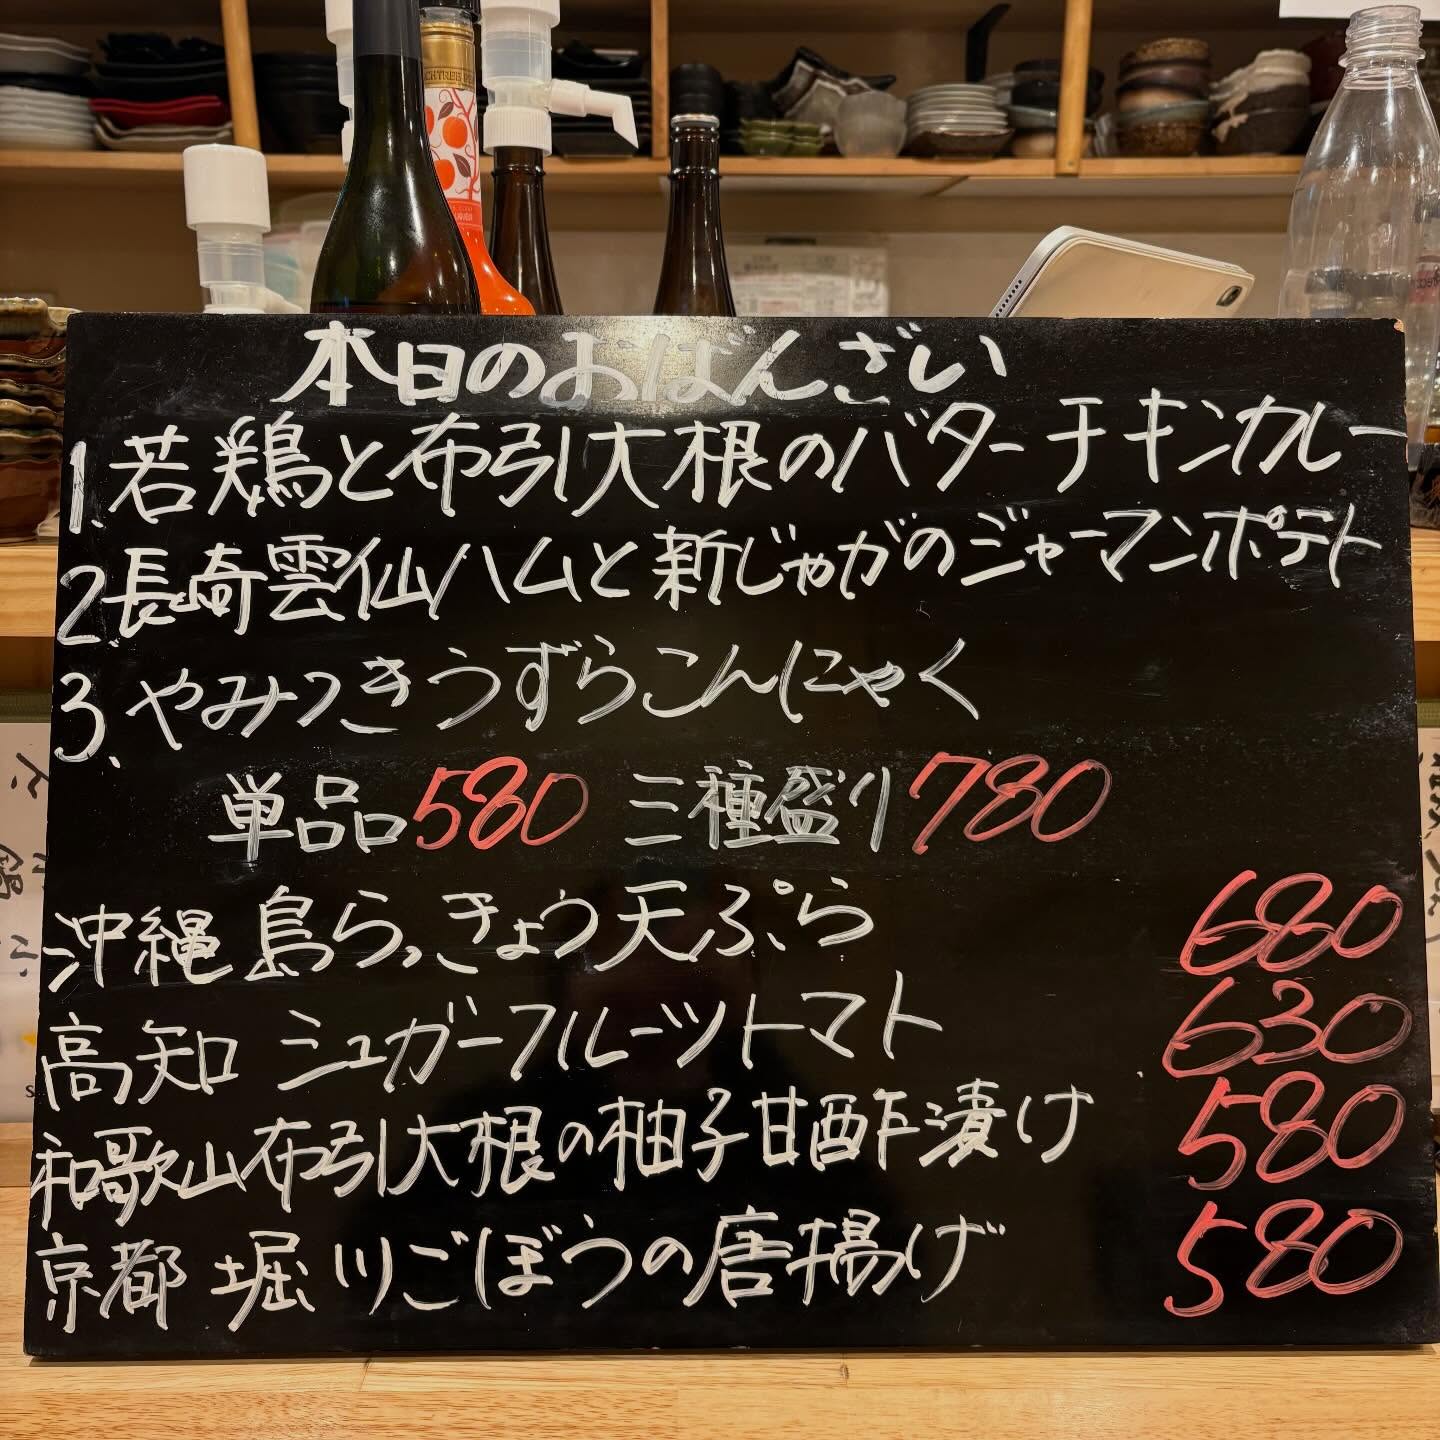 本日のおばんざい
1.若鶏と布引大根のバターチキンカレー
2.長崎雲仙ハムと新じゃがのジャーマンポテト
3.やみつきうずらこんにゃく
単品580 三種盛り780
沖縄 島らっきょう天ぷら 680
高知 シュガーフルーツトマト 630
和歌山布引大根の柚子甘酢漬け 580
京都 堀川ごぼうの唐揚げ 580